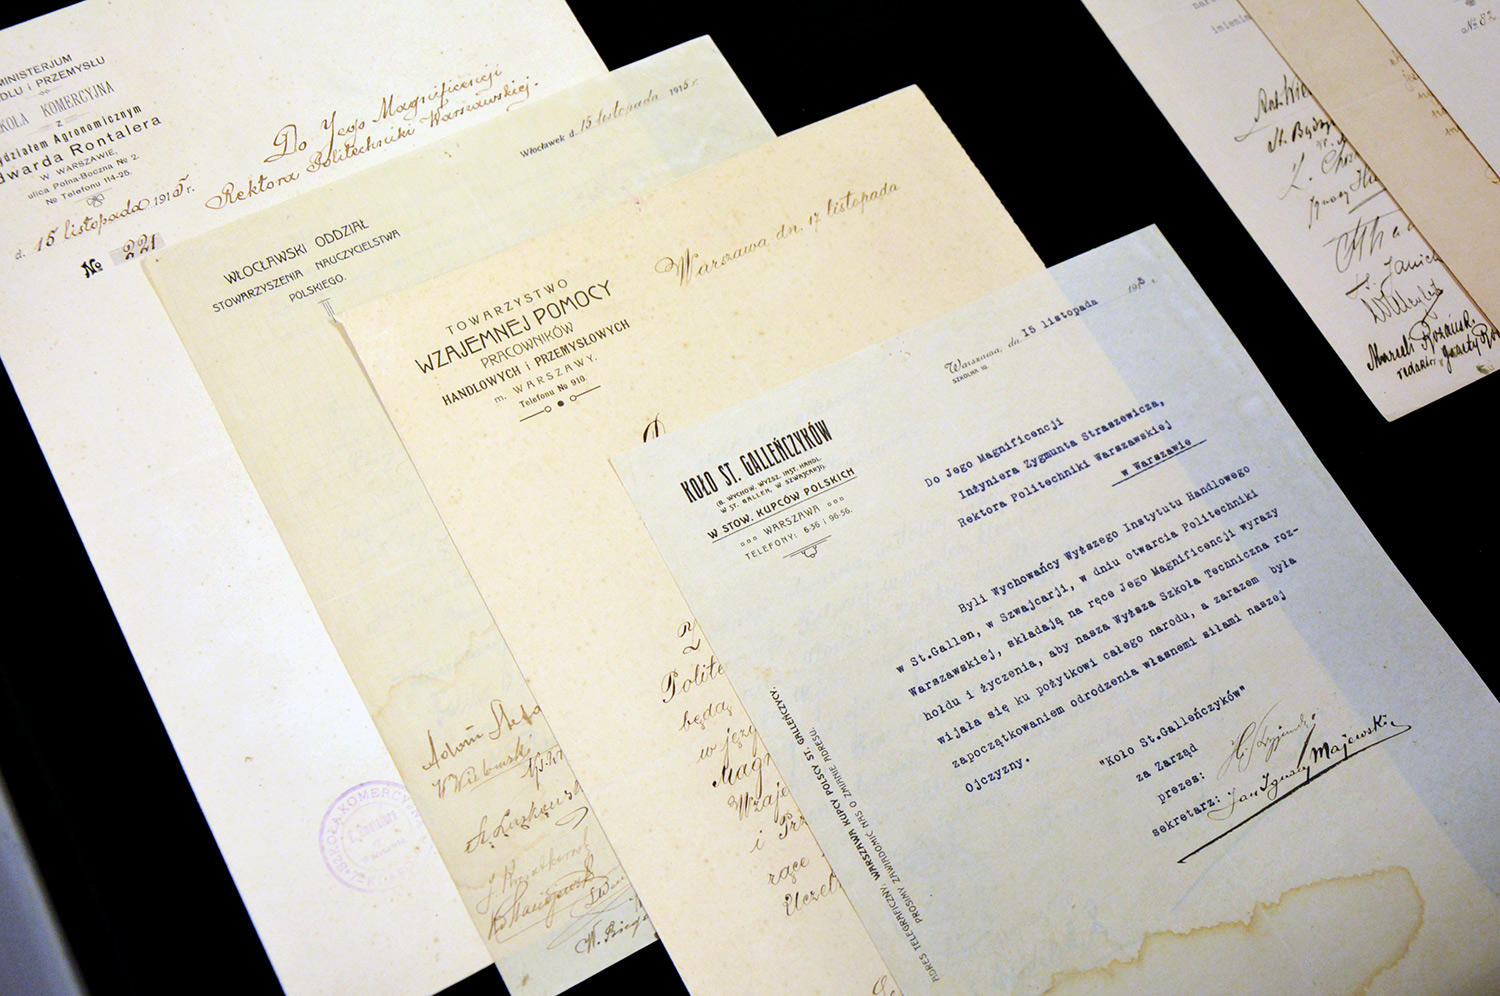 MINISTERJUM
HANDLU i PRZEMYSŁU
SZKOŁA KOMERCYJNA
z
Wydziałem Agronomicznym
Edwarda Rontalera
W WARSZAWIE,
ulica Polna-Boczna № 2.
№ Telefonu 114-25.
d. 15 listopada 1915 r.
№ 221
Do Jego Magnificencji
Rektora Politechniki Warszawskiej.
Włocławek d. 15 listopada 1915 r.
WŁOCŁAWSKI ODDZIAŁ
STOWARZYSZENIA NAUCZYCIELSTWA
POLSKIEGO.
Adam
TOWARZYSTWO
WZAJEMNEJ POMOCY
PRACOWNIKÓW
HANDLOWYCH i PRZEMYSŁOWYCH
m. WARSZAWY.
Telefonu № 910.
Warszawa dn. 17 listopada
Z
Polite
będą
w języ
Magn
Wzaje
i Prz
rące
Uczel
KOŁO ST. GALLEŃCZYKÓW
(B. WYCHOW. WYŻSZ. INST. HANDL.
W ST. GALLEN, W SZWAJCARJI).
W STOW. KUPCÓW POLSKICH
WARSZAWA
TELEFONY: 6-36 i 96-56.
Warszawa, dn. 15 listopada 1915 r.
SZKOLNA 10.
Do Jego Magnificencji
Inżyniera Zygmunta Straszewicza,
Rektora Politechniki Warszawskiej
w Warszawie
Byli Wychowańcy Wyższego Instytutu Handlowego
w St.Gallen, w Szwajcarji, w dniu otwarcia Politechniki
Warszawskiej, składają na ręce Jego Magnificencji wyrazy
hołdu i życzenia, aby nasza Wyższa Szkoła Techniczna roz-
wijała się ku pożytkowi całego narodu, a zarazem była
zapoczątkowaniem odrodzenia własnemi siłami naszej
Ojczyzny.
"Koło St.Galleńczyków"
za Zarząd
prezes:
sekretarz: Jan Ignacy Majewski
ADRES TELEGRAFICZNY: WARSZAWA KUPCY POLSCY ST. GALLEŃCZYCY.
PROSIMY ZAWIADOMIĆ NAS O ZMIANIE ADRESU.
imienie
№ 82
Ignacy
Marceli
redaktor "Gazety